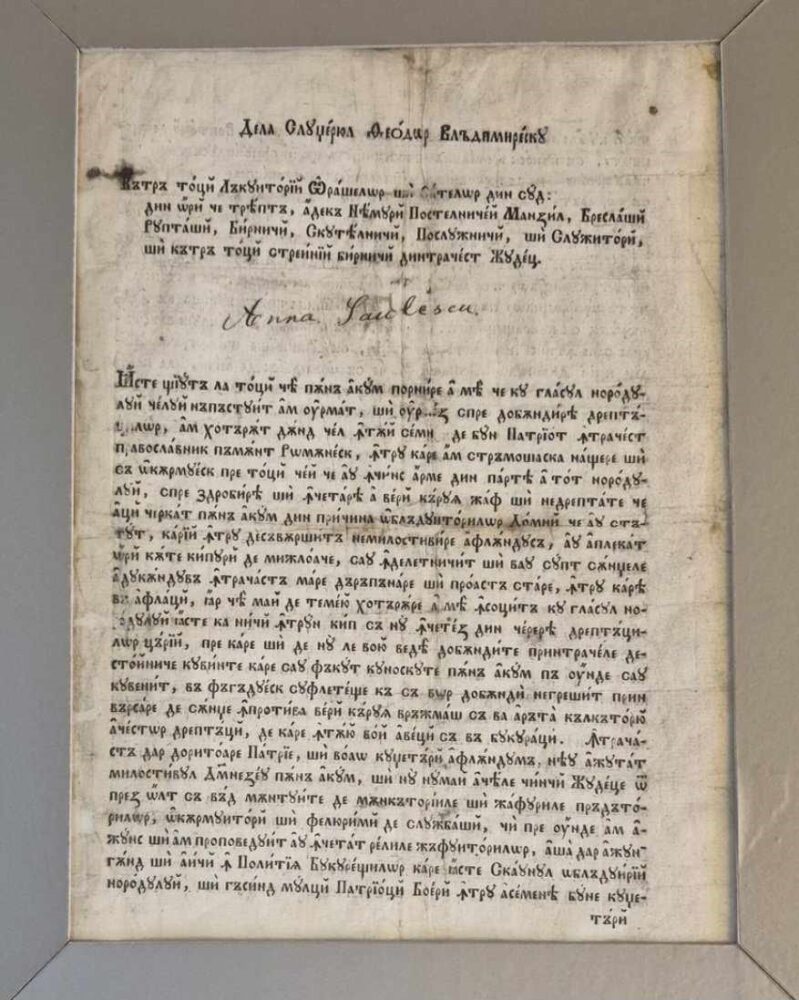 Дела Слꙋџерюл Ѳео́дѡр Влъдимире́скꙋ
Кътръ то́ци Лъкꙋито́рїй Ѡра́шелѡр ши Са́телѡр дин сꙋд:
дин ѡри че трѣптъ, а́декъ Нѣ́мꙋрй Постелниче́й Манзил, Бресла́ший
Рꙋпта́ший, Би́рничй, Скꙋтѣ́лничй, По́слꙋжничй, шй Слꙋжито́рй,
шй кътръ то́цй стреи́нїй би́рничй динтраче́ст Жꙋдѣ́ц.
Anna Saulescu.
Ꙗ҆́сте щїꙋ́тъ ла то́цй чѣ пѫ́нъ акꙋ́м порни́ре а мѣ че кꙋ гла́сꙋл норо́дꙋ-
лꙋй че́лꙋй нъпъстꙋи́т ам ꙋрма́т, шй спре добѫнди́рѣ дрептъ́-
цилѡр, ам хотърѫ́т дѫнд чел ꙟтѫ́й семн де бꙋн Патрїо́т ꙟтраче́ст
правосла́вник пъмѫ́нт Рꙋмѫне́ск, ꙟтрꙋ ка́ре ам стръмоша́ска на́щере шй
съ ѡкѫрмꙋе́ск пре то́цй чей че аꙋ ꙟчи́нс а́рме дин па́ртѣ а тот норо́дꙋ-
лꙋй, спре здроби́рѣ шй ꙟчета́рѣ а ве́рй ка́рꙋѧ жаф шй недрепта́те че
аци черка́т пѫ́нъ акꙋ́м дин причи́на ѡблъдꙋито́рилѡр До́мнй че аꙋ стъ-
тꙋ́т, ка́рїй ꙟтрꙋ десъвѫрши́т немилостиви́ре афлѫ́ндꙋсъ, аꙋ аплека́т
ѡрй кѫ́те ки́пꙋрй де мижлоа́че, саꙋ ꙟделетничи́т шй ваꙋ сꙋпт сѫ́нџеле
адꙋкѫ́ндꙋвъ ꙟтрача́стъ ма́ре дъръпъна́ре шй проа́стъ ста́ре, ꙟтрꙋ ка́рѣ
въ афла́цй, ꙗр чѣ май де теме́ю хотърѫ́ре а мѣ ꙟсоци́тъ кꙋ гла́сꙋл но-
ро́дꙋлꙋй ꙗ́сте ка ничй ꙟтрꙋ́н кип съ нꙋ ꙟчете́з дин че́рерѣ дрептъ́ци-
лѡр цъ́рїй, пре ка́ре шй де нꙋ ле вою ведѣ добѫнди́те принтраче́ле де-
сто́йниче кꙋви́нте ка́ре саꙋ фъкꙋ́т кꙋноскꙋ́те пѫ́нъ акꙋ́м пъ ꙋ́нде саꙋ
кꙋвени́т, въ фъгъдꙋе́ск сꙋфлете́ще къ съ вѡр добѫндй́ негреши́т прин
върса́ре де сѫ́нџе ꙟпроти́ва ве́рй ка́рꙋѧ връжма́ш съ ва аръта̀ кълкъто́рю
аче́стѡр дрептъ́цй, де ка́ре ꙟтѫ́ю вой аве́цй съ въ бꙋкꙋра́ци. Ꙟтрача́-
стъ дар дорито́аре Патрї́е, шй во́аѡ кꙋџетърй афлѫ́ндꙋмъ, неꙋ ажꙋта́т
ми́лостивꙋл Дꙋмнезе́ꙋ пѫ́нъ акꙋ́м, шй нꙋ нꙋмай аче́ле чинчй Жꙋде́це
през Ѡлт съ въд мѫнтꙋи́те де мѫнкъто́рїиле шй жа́фꙋриле пръдъто́-
рилѡр, ѡкѫрмꙋито́рй шй фелюри́мй де слꙋжба́шй, чй пре ꙋ́нде ам а-
жꙋ́нс шй ам проповедꙋи́т аꙋ ꙟчета́т ре́лиле жъфꙋито́рилѡр, аша̀ дар ажꙋн-
гѫ́нд шй аи́чй ꙟ Полити́ѧ Бꙋкꙋре́щилѡр ка́ре ꙗ́сте Ска́ꙋнꙋл ѡблъдꙋи́рїй
норо́дꙋлꙋй, шй гъси́нд мꙋлцй Патрїо́цй Бое́рй ꙟтрꙋ асе́менѣ бꙋ́не кꙋџе-
тъ́рй